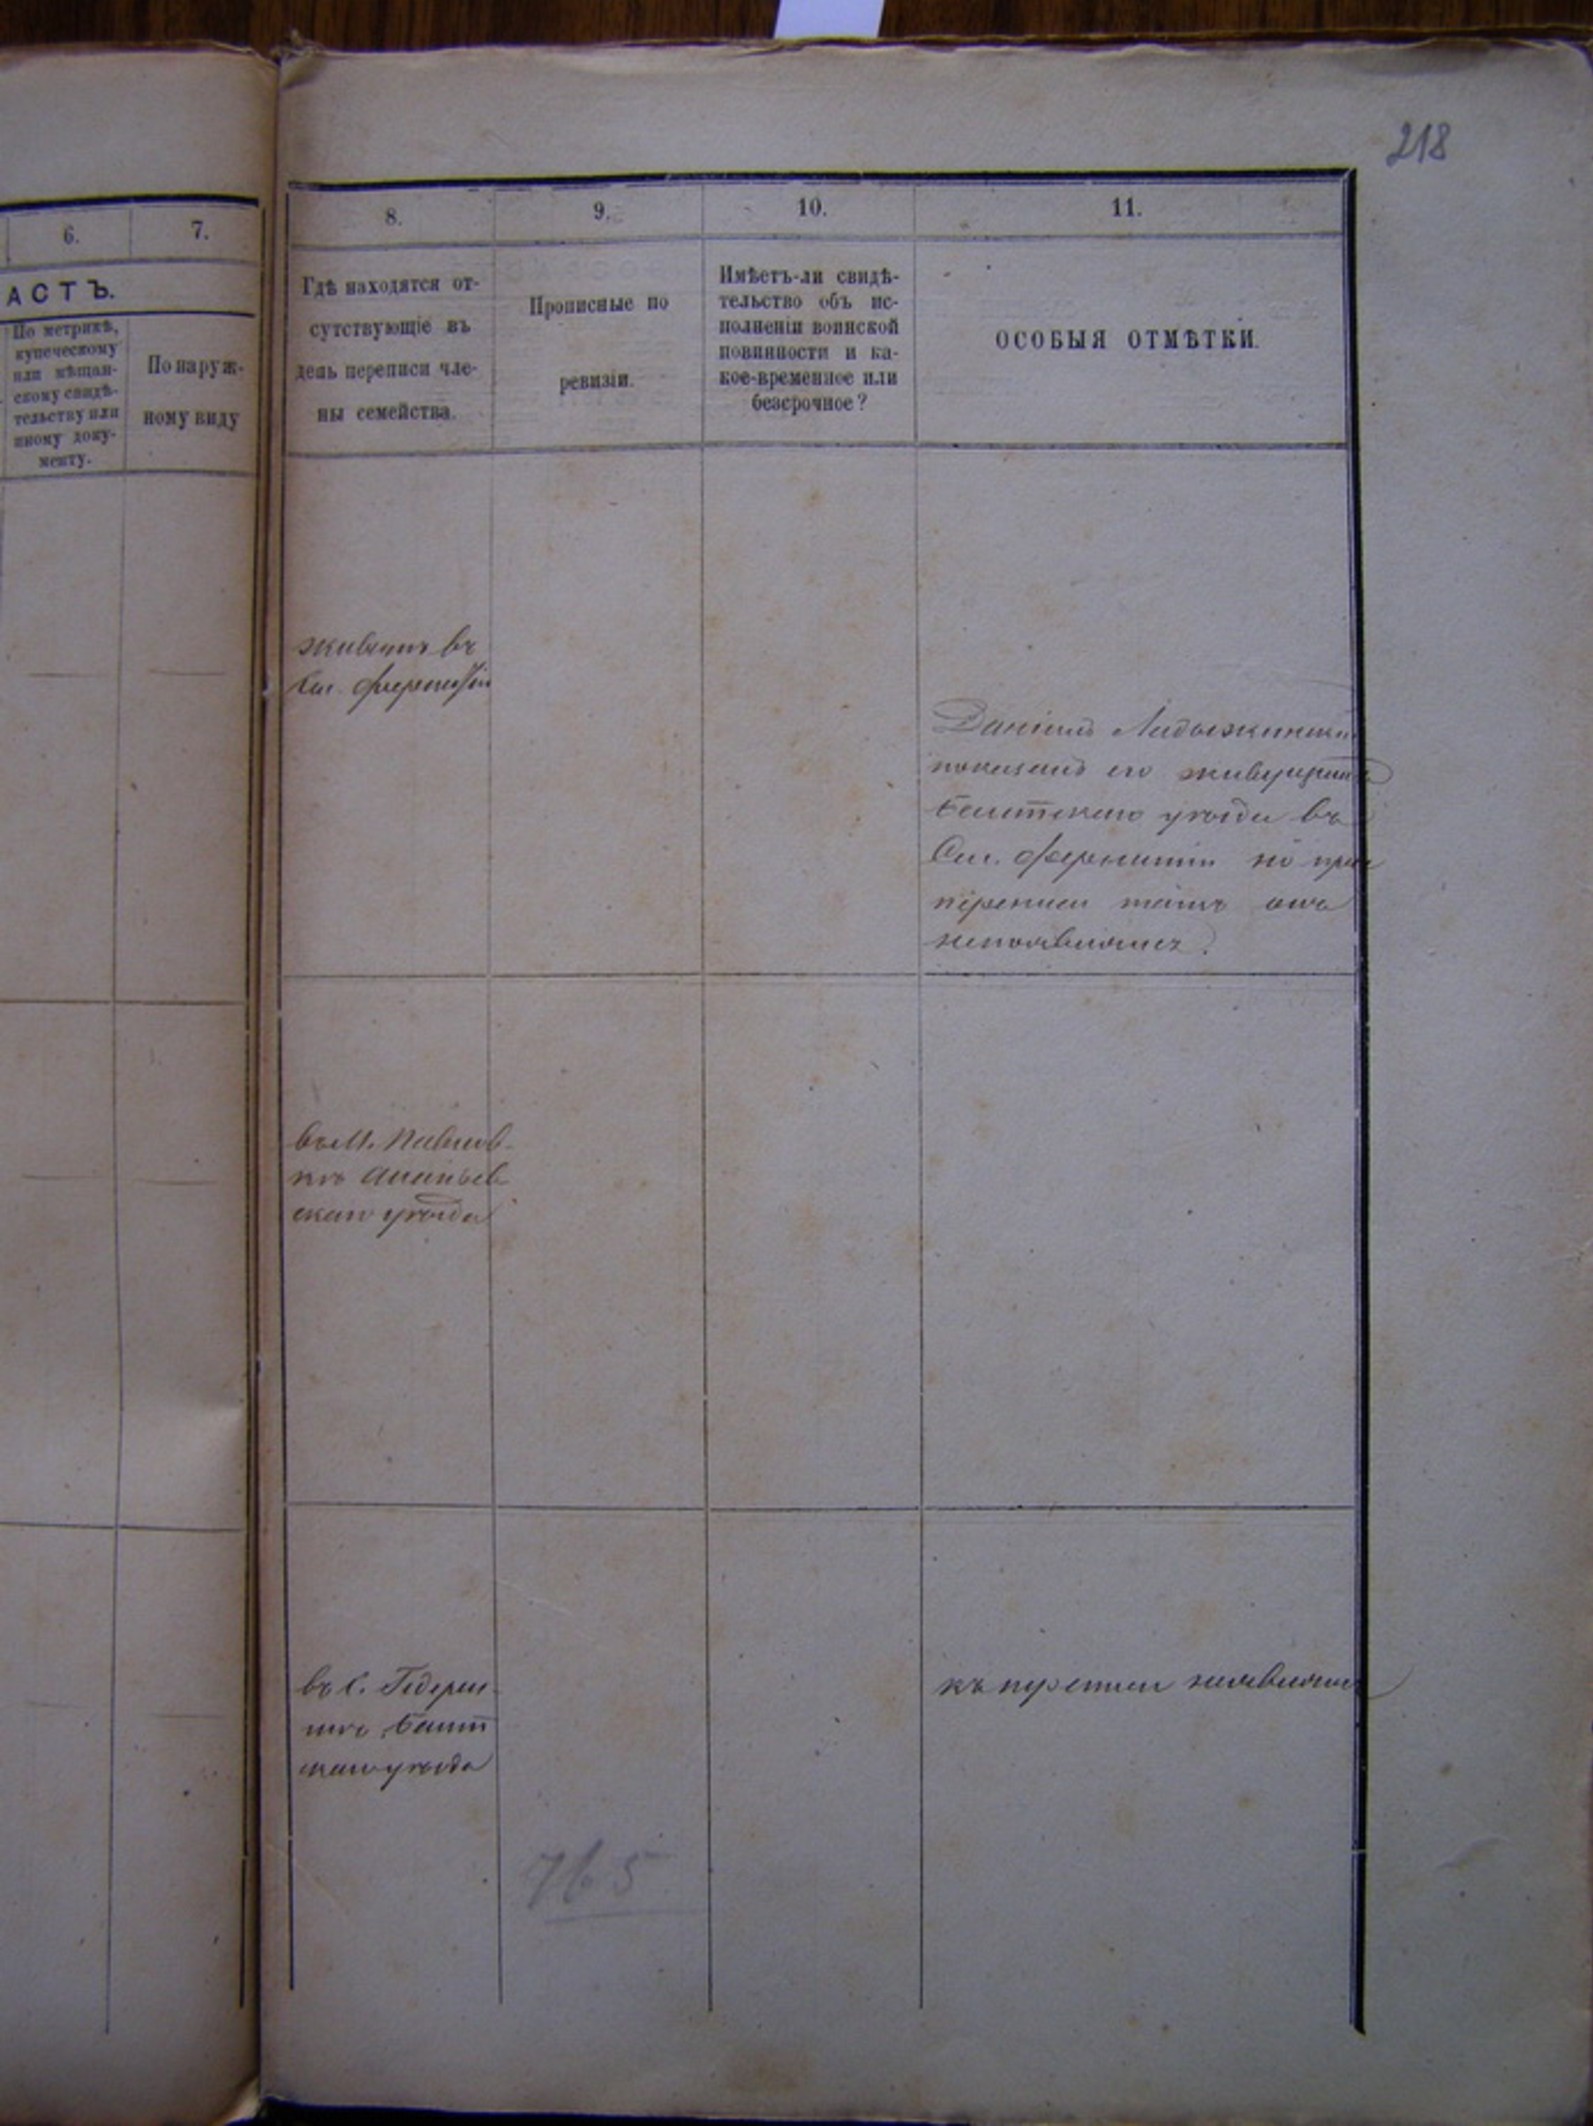 218
6.
7.
АСТЪ.
По метрикѣ,
купеческому
или мѣщан-
скому свидѣ-
тельству или
иному доку-
менту.
По наруж-
ному виду
8.
9.
10.
11.
Гдѣ находятся от-
сутствующіе въ
день переписи чле-
ны семейства.
Прописные по
ревизіи.
Имѣетъ-ли свидѣ-
тельство объ ис-
полненіи воинской
повинности и ка-
кое-временное или
безсрочное?
ОСОБЫЯ ОТМѢТКИ.
живетъ въ
Даніилъ
показалъ его живущимъ
уѣзда въ
но при
переписи тамъ онъ
неоявился.
въ М. Павлов-
кѣ Ананьев
скаго уѣзда
въ с.
уѣзда
къ переписи неявился
765